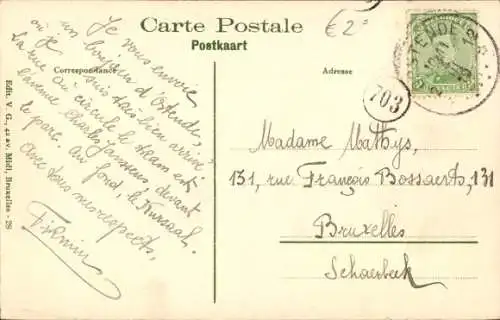 Carte Postale
Postkaart
Correspondance
Adresse
€2
OSTENDE
703
Je vous envoie
un bonjour d'Ostende,
où je suis très bien arrivé.
La rue où circule le tram est
l'avenue Charles Janssens, devant
le parc. Au fond, le Kursaal.
Avec tous mes respects,
Firmin
Madame Mathys,
131, rue François Bossaerts, 131
Bruxelles
Schaerbeek
Edit. V. G., 42 av. Midi, Bruxelles - 28